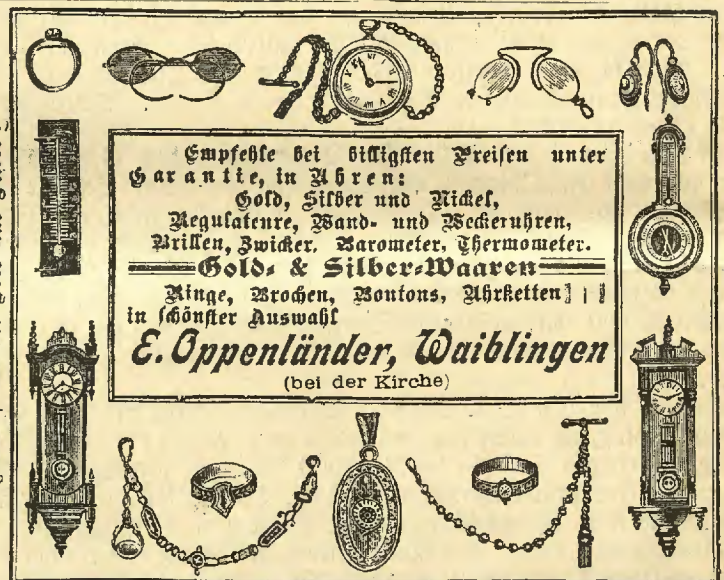 Empfehle bei billigsten Preisen unter
Garantie, in Uhren:
Gold, Silber und Nickel,
Regulateure, Wand- und Weckeruhren,
Brillen, Zwicker, Barometer, Thermometer.
Gold- & Silber-Waaren
Ringe, Brochen, Boutons, Uhrketten
in schönster Auswahl
E. Oppenländer, Waiblingen
(bei der Kirche)